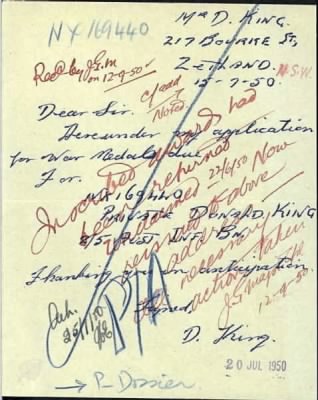 NX169440
Mr D. King.
217 Bourke St,
Zetland. N.S.W.
15-7-50.
Recd by J.G.M
on 12-9-50
c/add
Noted.
Dear Sir.
Hereunder my application
for War Medals due
For.
NX169440
Private Donald, King
8/5 Aust Inf Bn
Thanking you in anticipation
Yours
D. King.
Inscribed awards had
been returned
unclaimed 22/6/50 Now
to above
address
all necessary
action taken
12-9-50.
Ack.
25/1/50
P/A
20 JUL 1950
→ P- Dossier